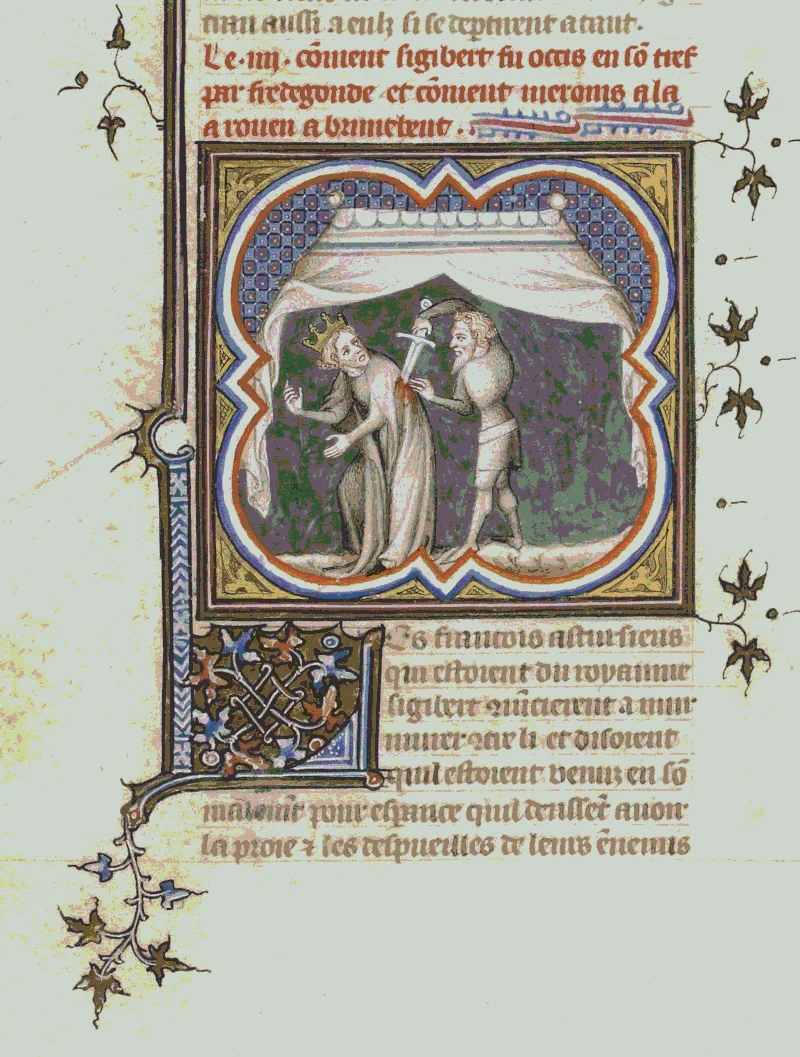 trau aussi a eulz si se deptirent a tant.
Le .iiij. cōment sigibert fu occis en sō tref
par fredegonde et cōment meroms ala
a rouen a brunehent.
Es francois asturiiens
qui estoient du royaume
sigibert 9mēcierent a mur
murer 9tre li et disoient
quil estoient venuz en sō
maleur pour espance quil deussēt auoir
la proie ⁊ les despueilles de leurs ēnemis